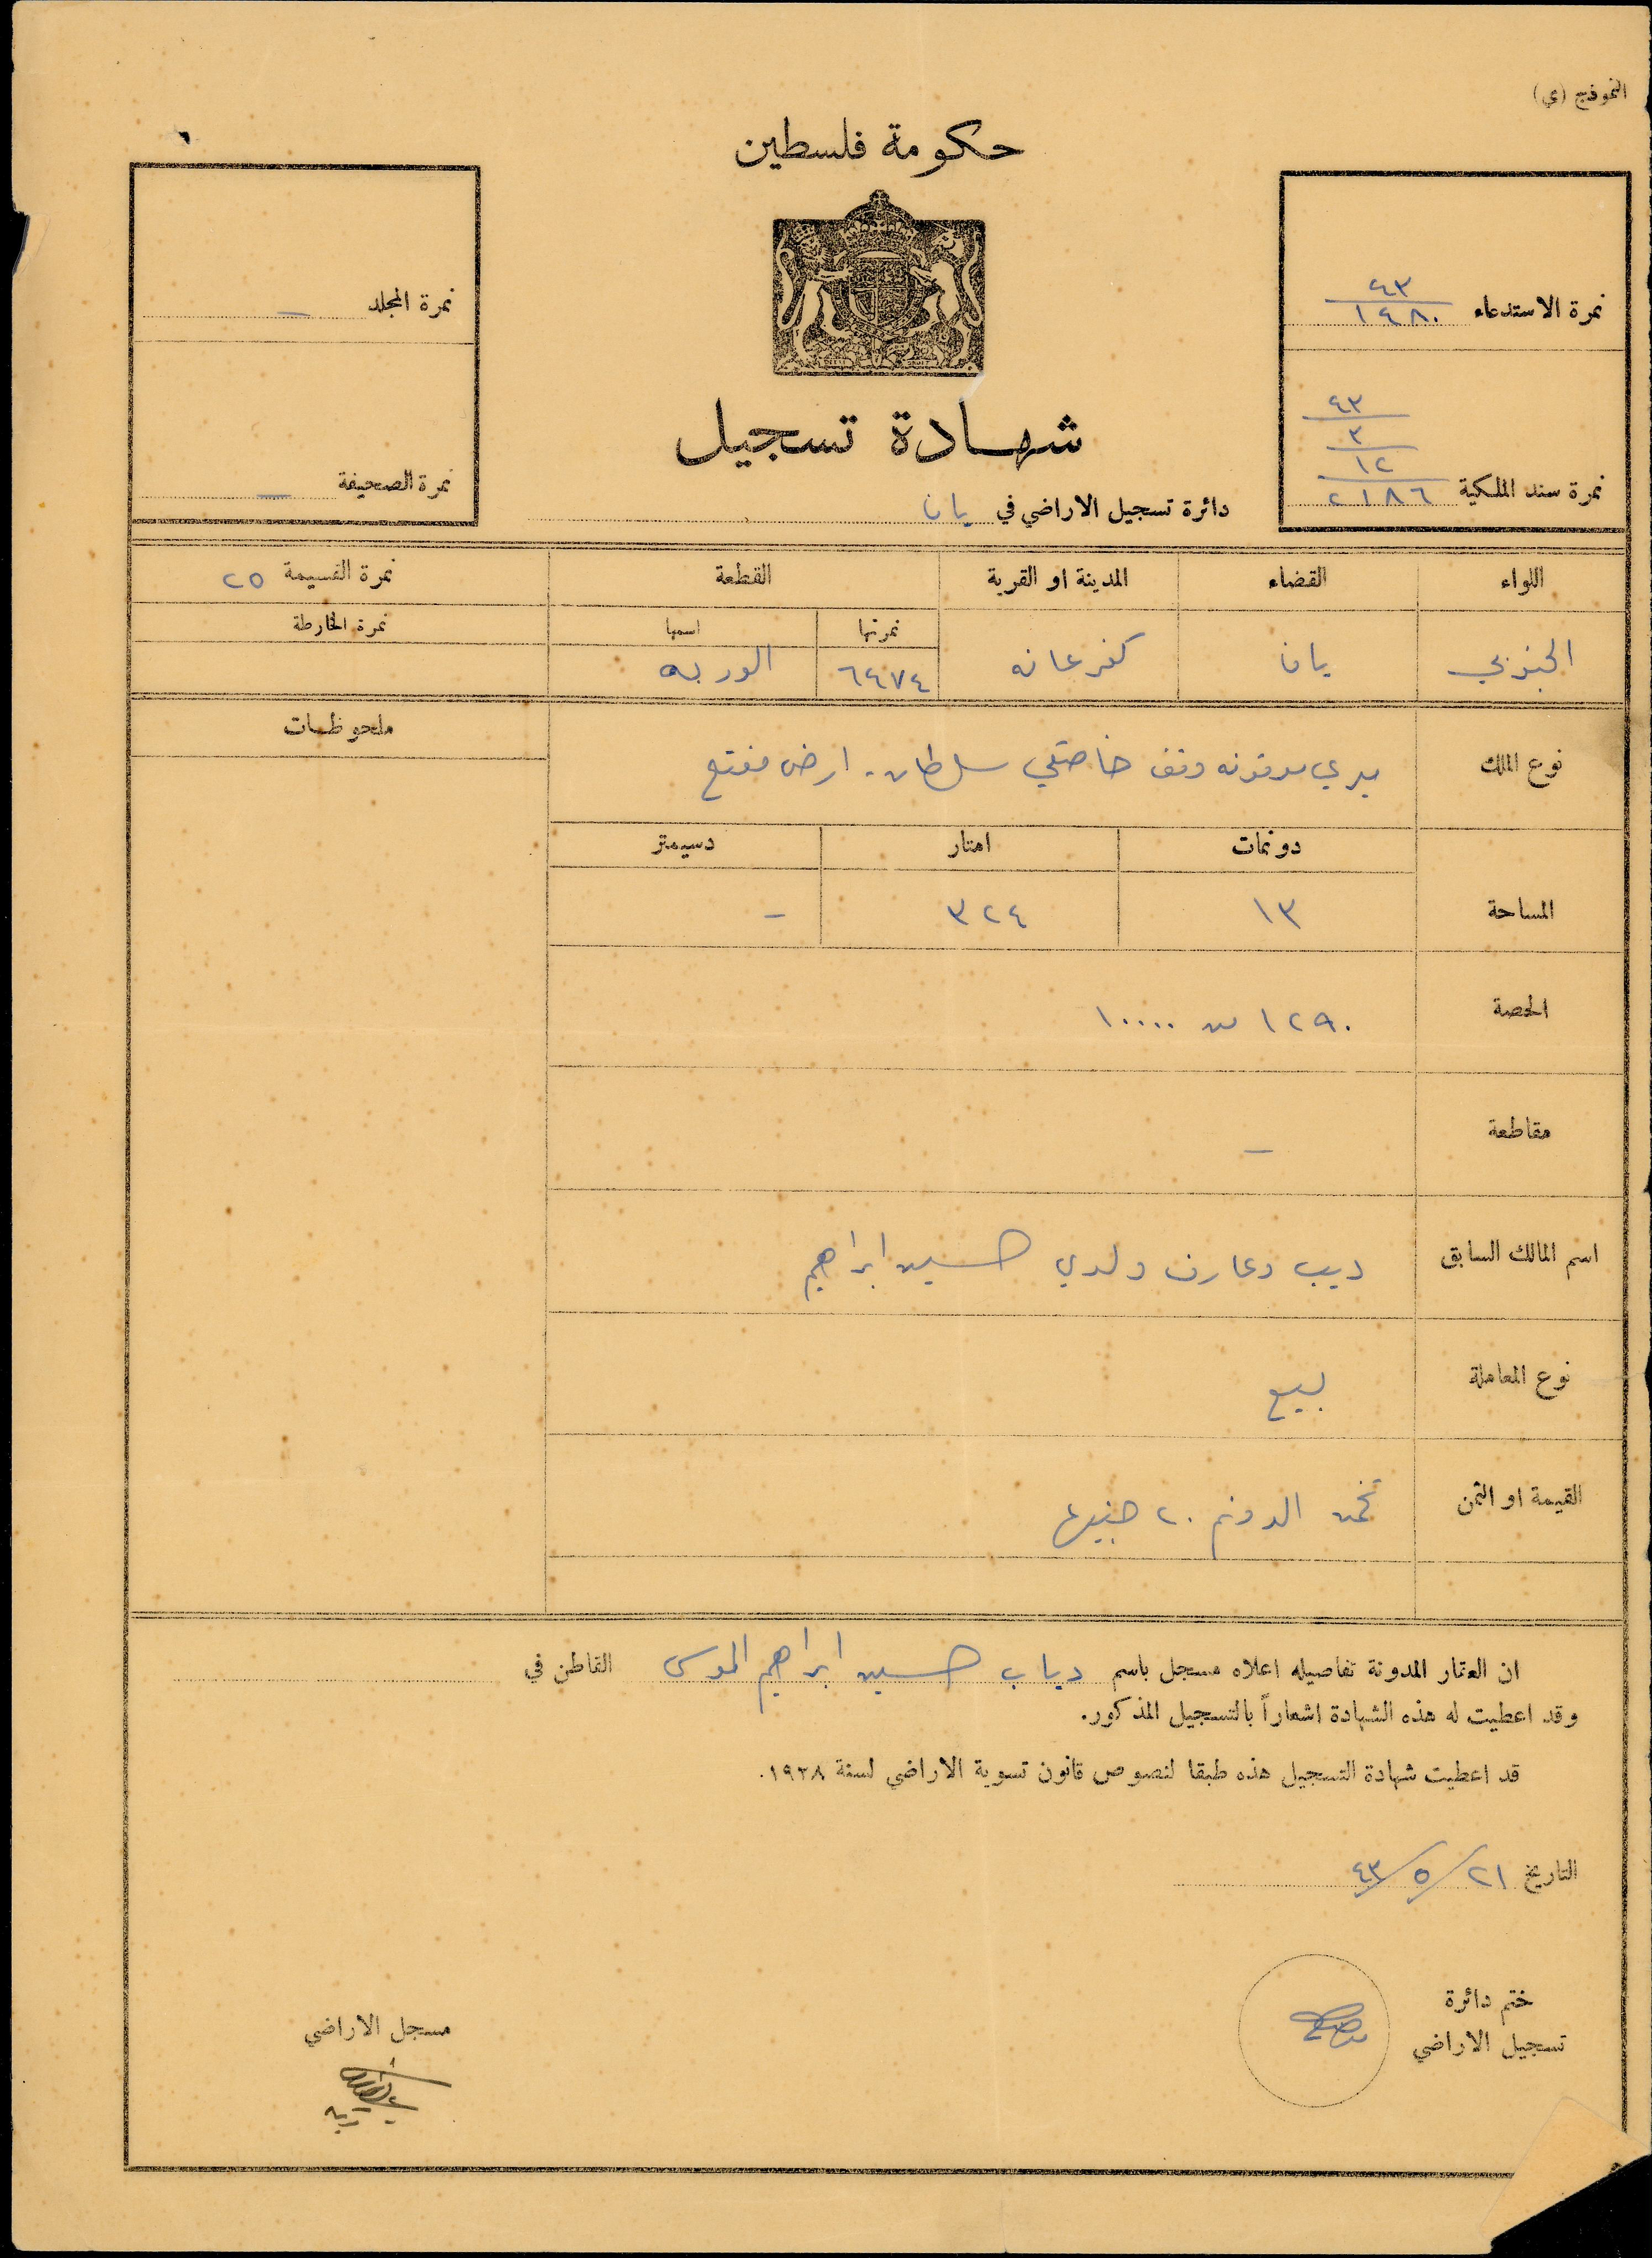 النموذج (ي)
حكومة فلسطين
نمرة الاستدعاء ٤٣ / ١٤٨٠
نمرة المجلد —
شهادة تسجيل
نمرة سند الملكية ٤٣ / ٣ / ١٢ / ٢١٨٦
نمرة الصحيفة —
دائرة تسجيل الاراضي في يافا
اللواء القضاء المدينة او القرية القطعة نمرة القسيمة ٢٥
نمرتها اسمها نمرة الخارطة
الجنوبي يافا كفرعانه ٦٤٧٤
ملحوظات
نوع الملك ميري موقوفه وقف خاصكي سلطان. ارض مفتلح
دونمات امتار دسيمتر
المساحة ١٣ ٣٢٤ —
الحصة ١٢٩٠ من ١٠٠٠٠
مقاطعة —
اسم المالك السابق ديب وعارف ولدي حسين ابراهيم
نوع المعاملة بيع
القيمة او الثمن تخمن الدونم ٢٠ جنيها
ان العقار المدونة تفاصيله اعلاه مسجل باسم دياب حسين ابراهيم الموسى القاطن في
وقد اعطيت له هذه الشهادة اشعاراً بالتسجيل المذكور.
قد اعطيت شهادة التسجيل هذه طبقا لنصوص قانون تسوية الاراضي لسنة ١٩٢٨.
التاريخ ٢١/٥/٤٣
ختم دائرة
تسجيل الاراضي
مسجل الاراضي